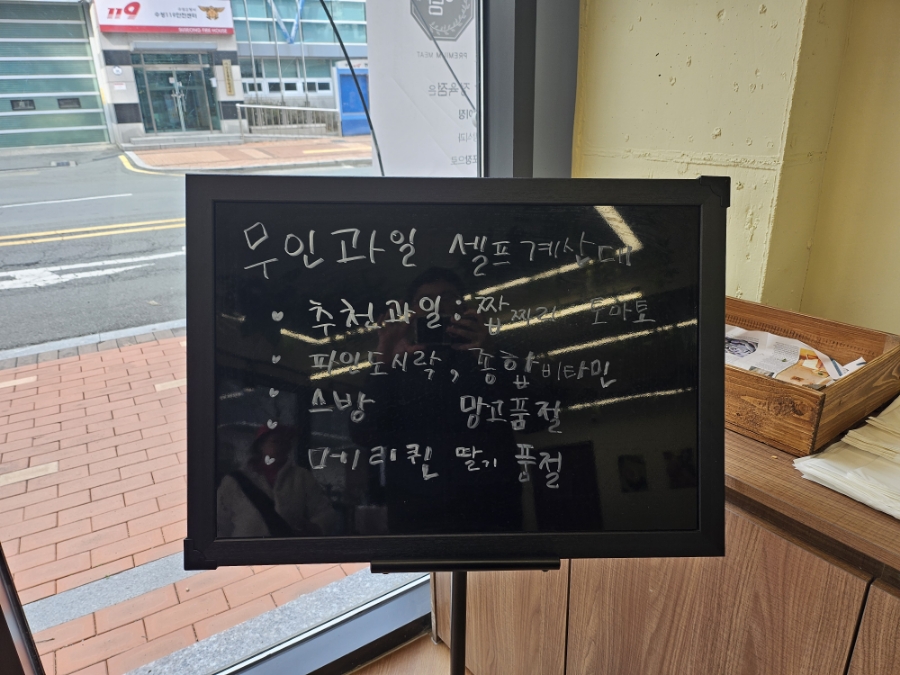 119
PREMIUM MEAT
무인과일 셀프계산대
추천과일 : 짭짜리 토마토
파인도시락, 종합비타민
스방 망고품절
메리퀸 딸기 품절